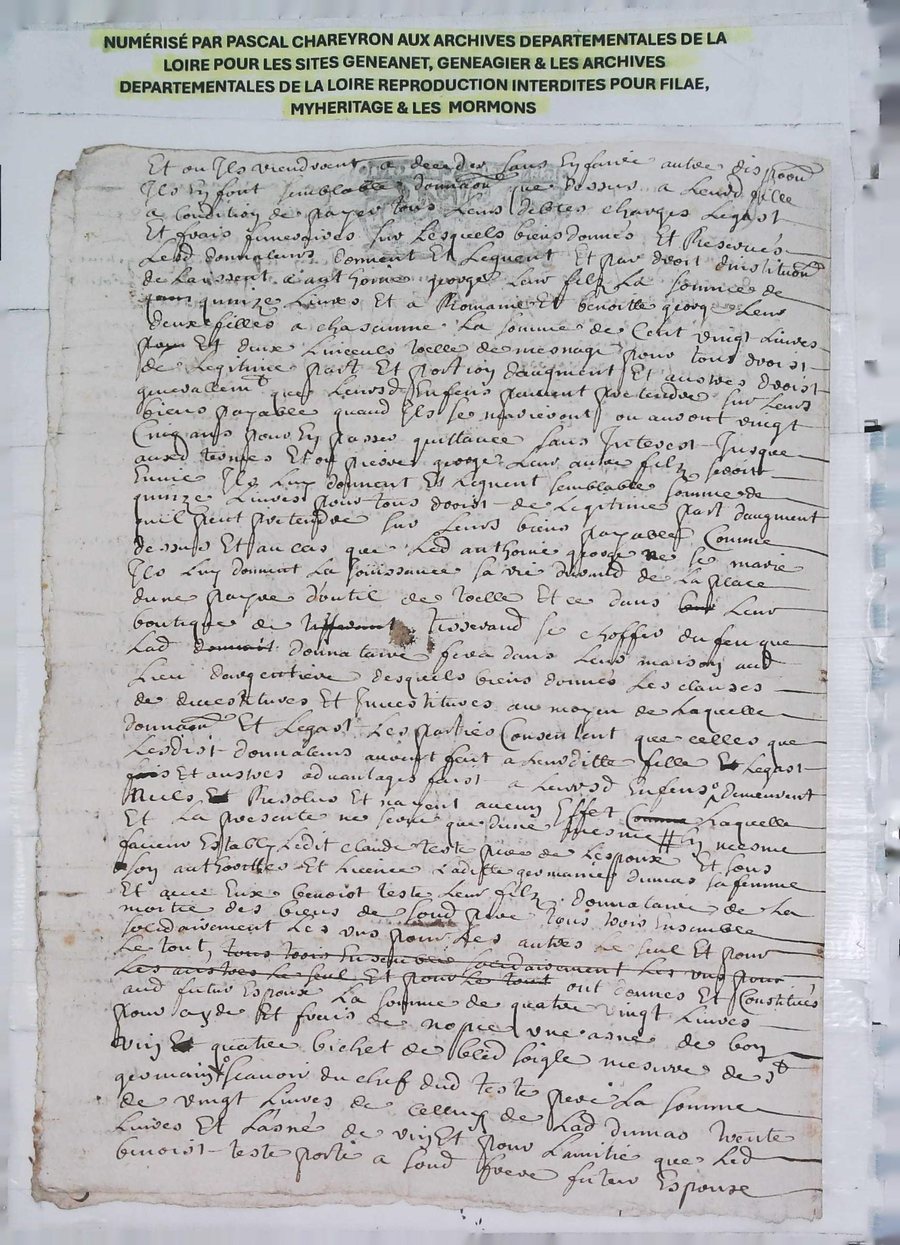 NUMÉRISÉ PAR PASCAL CHAREYRON AUX ARCHIVES DEPARTEMENTALES DE LA
LOIRE POUR LES SITES GENEANET, GENEAGIER & LES ARCHIVES
DEPARTEMENTALES DE LA LOIRE REPRODUCTION INTERDITES POUR FILAE,
MYHERITAGE & LES MORMONS
Et ou Ils viendroient a deceder sans Enfans autre
Ils En font semblable donnaon que dessus a leurd fille
a Condition de payer tous leurs debtes charges Legast
Et frais funeraires sur Lesquels biens donnés Et Reservés
Lesd donnateurs donnent Et Leguent Et par droit dinstitution
de Laissent a anthoine george Leur filz La somme de
quinze Livres Et a Romaine Et benoitte george Leur
deux filles a chascunne La somme de Cent vingt Livres
Et deux Linceuls toelle de mesnage pour tous droist
de Legitime part Et portion daugment Et autres droist
generallemt que Leursd Enfans peuvent pretendre sur Leurs
biens payable quand Ils se marieront ou auront vingt
Cinq ans pour En passer quittance sans Interest Jusque
ausd termes Et ou pierre george Leur autre filz
Ils Luy donnent Et Leguent semblable somme de
quinze Livres pour tous droist de Legitime part daugment
quil peut pretendre sur Leurs biens payable Comme
dessus Et au cas que Led anthoine george ne se marie
Ils Luy donnent La Jouissance sa vie durand de La place
dune payre doutil de toelle Et ce dans Leur
boutique de tisserand se choffer du feu que
Lad donnataire fera dans Leur maison aud
Lieu dargentiere desquels biens donnés Les clauses
de devestitures Et Investitures au moyen de Laquelle
donnaon Et Legast Les parties Consentent que celles que
Lesdist donnateurs avoient fait a Leurditte fille Et Legast
Et autres advantages faist a Leursd Enfens demeurent
Nuls Et Resolus Et nayent aucun Effet Laquelle
Et La presente ne sera que dune mesme En mesme
faveur Estably Ledit claude teste pere de Lespoux Et sous
son authorittes Et Licence Laditte germaine dumas sa femme
Et avec Eux benoist teste Leur filz donnataire de La
moitié des biens de soud pere tous trois Ensemble
solidairement Les uns pour Les autres seul Et pour
Le tout, tous trois Ensemble solidairement Les uns pour
Les autres Le seul Et pour Le tout ont donnés Et Constitués
aud futur Espoux La somme de quatre vingt Livres
pour ayde Et frais de nopce une asne de bon
vin Et quatre bichet de bled soigle mesure de St
germain scavoir du chef dud teste pere La somme
de vingt Livres de celluy de Lad dumas trente
Livres Et Lasné de vin Et pour Lamitié que Led
benoist teste porte a soud frere futur Espoux